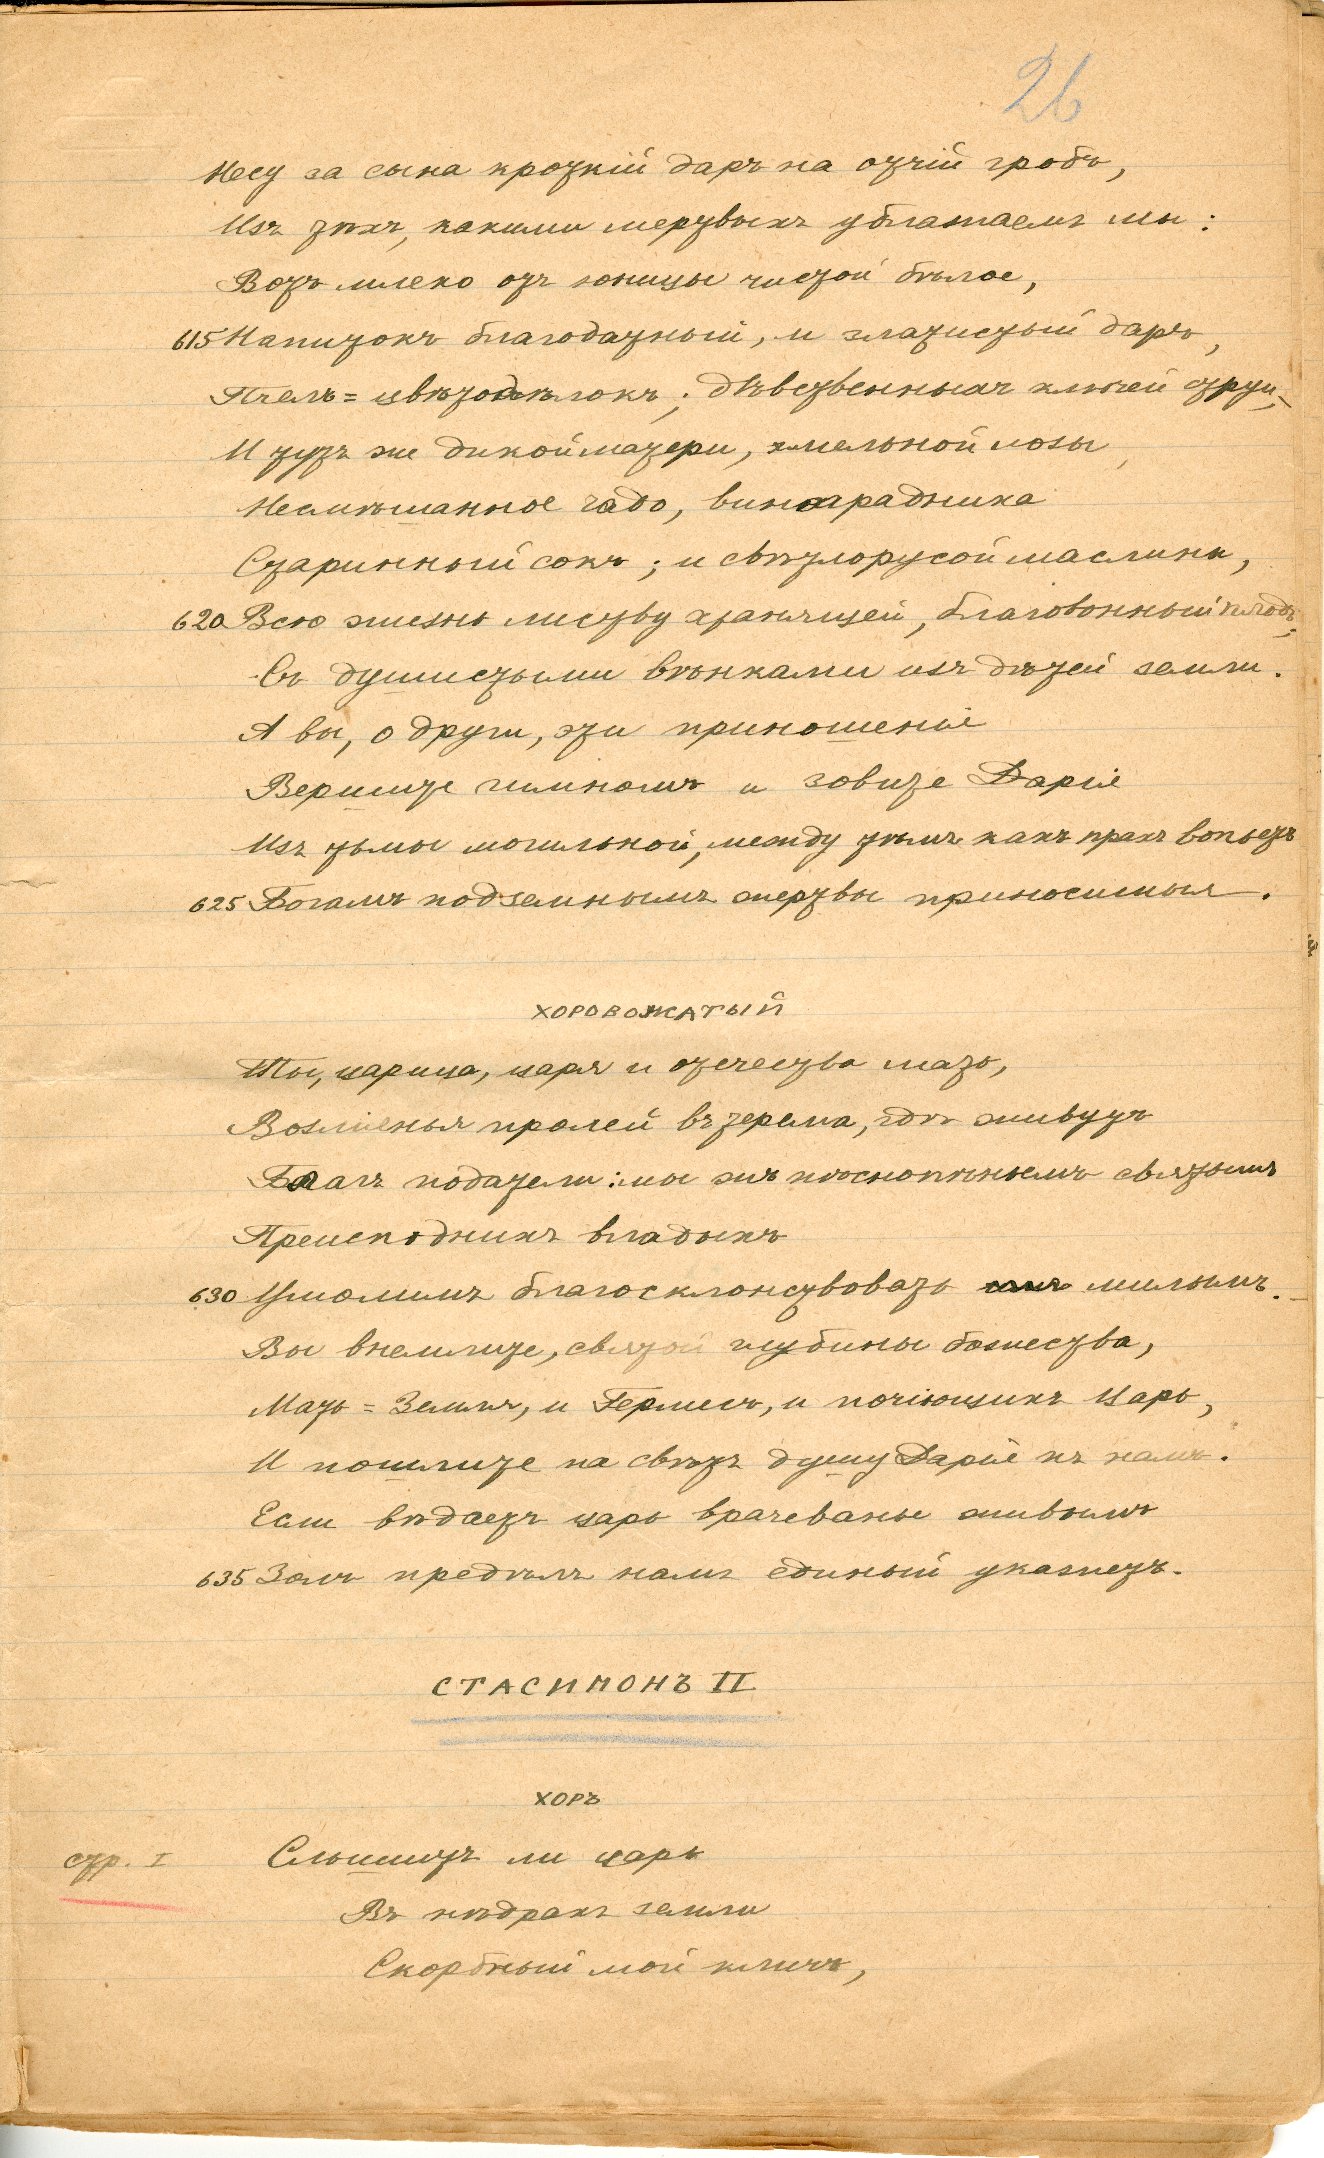 26
Несу за сына кроткій даръ на отчій гробъ,
Изъ тѣхъ, какими мертвыхъ ублажаемъ мы:
Вотъ млеко отъ юницы чистой бѣлое,
615 Напитокъ благодатный, и златистый даръ,
Пчелъ=цвѣтодѣлокъ; дѣвственныхъ ключей струи;
И тутъ же дикой матери, хмельной лозы,
Несмѣшанное чадо, виноградника
Старинный сокъ; и свѣтлорусой маслины,
620 Всю жизнь листву хранящей, благовонный плодъ;
Съ душистыми вѣнками изъ дѣтей земли.
А вы, о други, эти приношенія
Вершите гимномъ и зовите Дарія
Изъ тьмы могильной, между тѣмъ какъ прахъ вопьетъ
625 Богамъ подземнымъ жертвы приносимыя.
ХОРОВОЖАТЫЙ
Ты, царица, царя и отечества мать,
Возліянья пролей въ терема, гдѣ живутъ
Благъ податели: мы жъ пѣснопѣньемъ святымъ
Преисподнихъ владыкъ
630 Умолимъ благосклонствовать милымъ.
Вы внемлите, святой глубины божества,
Мать=Земля, и Гермесъ, и почіющихъ Царь,
И пошлите на свѣтъ душу Дарія къ намъ.
Если вѣдаетъ царь врачеванье живымъ
635 Золъ предѣлъ намъ единый укажетъ.
СТАСИМОНЪ II
ХОРЪ
стр. I Слышитъ ли царь
Въ нѣдрахъ земли
Скорбный мой кличъ,